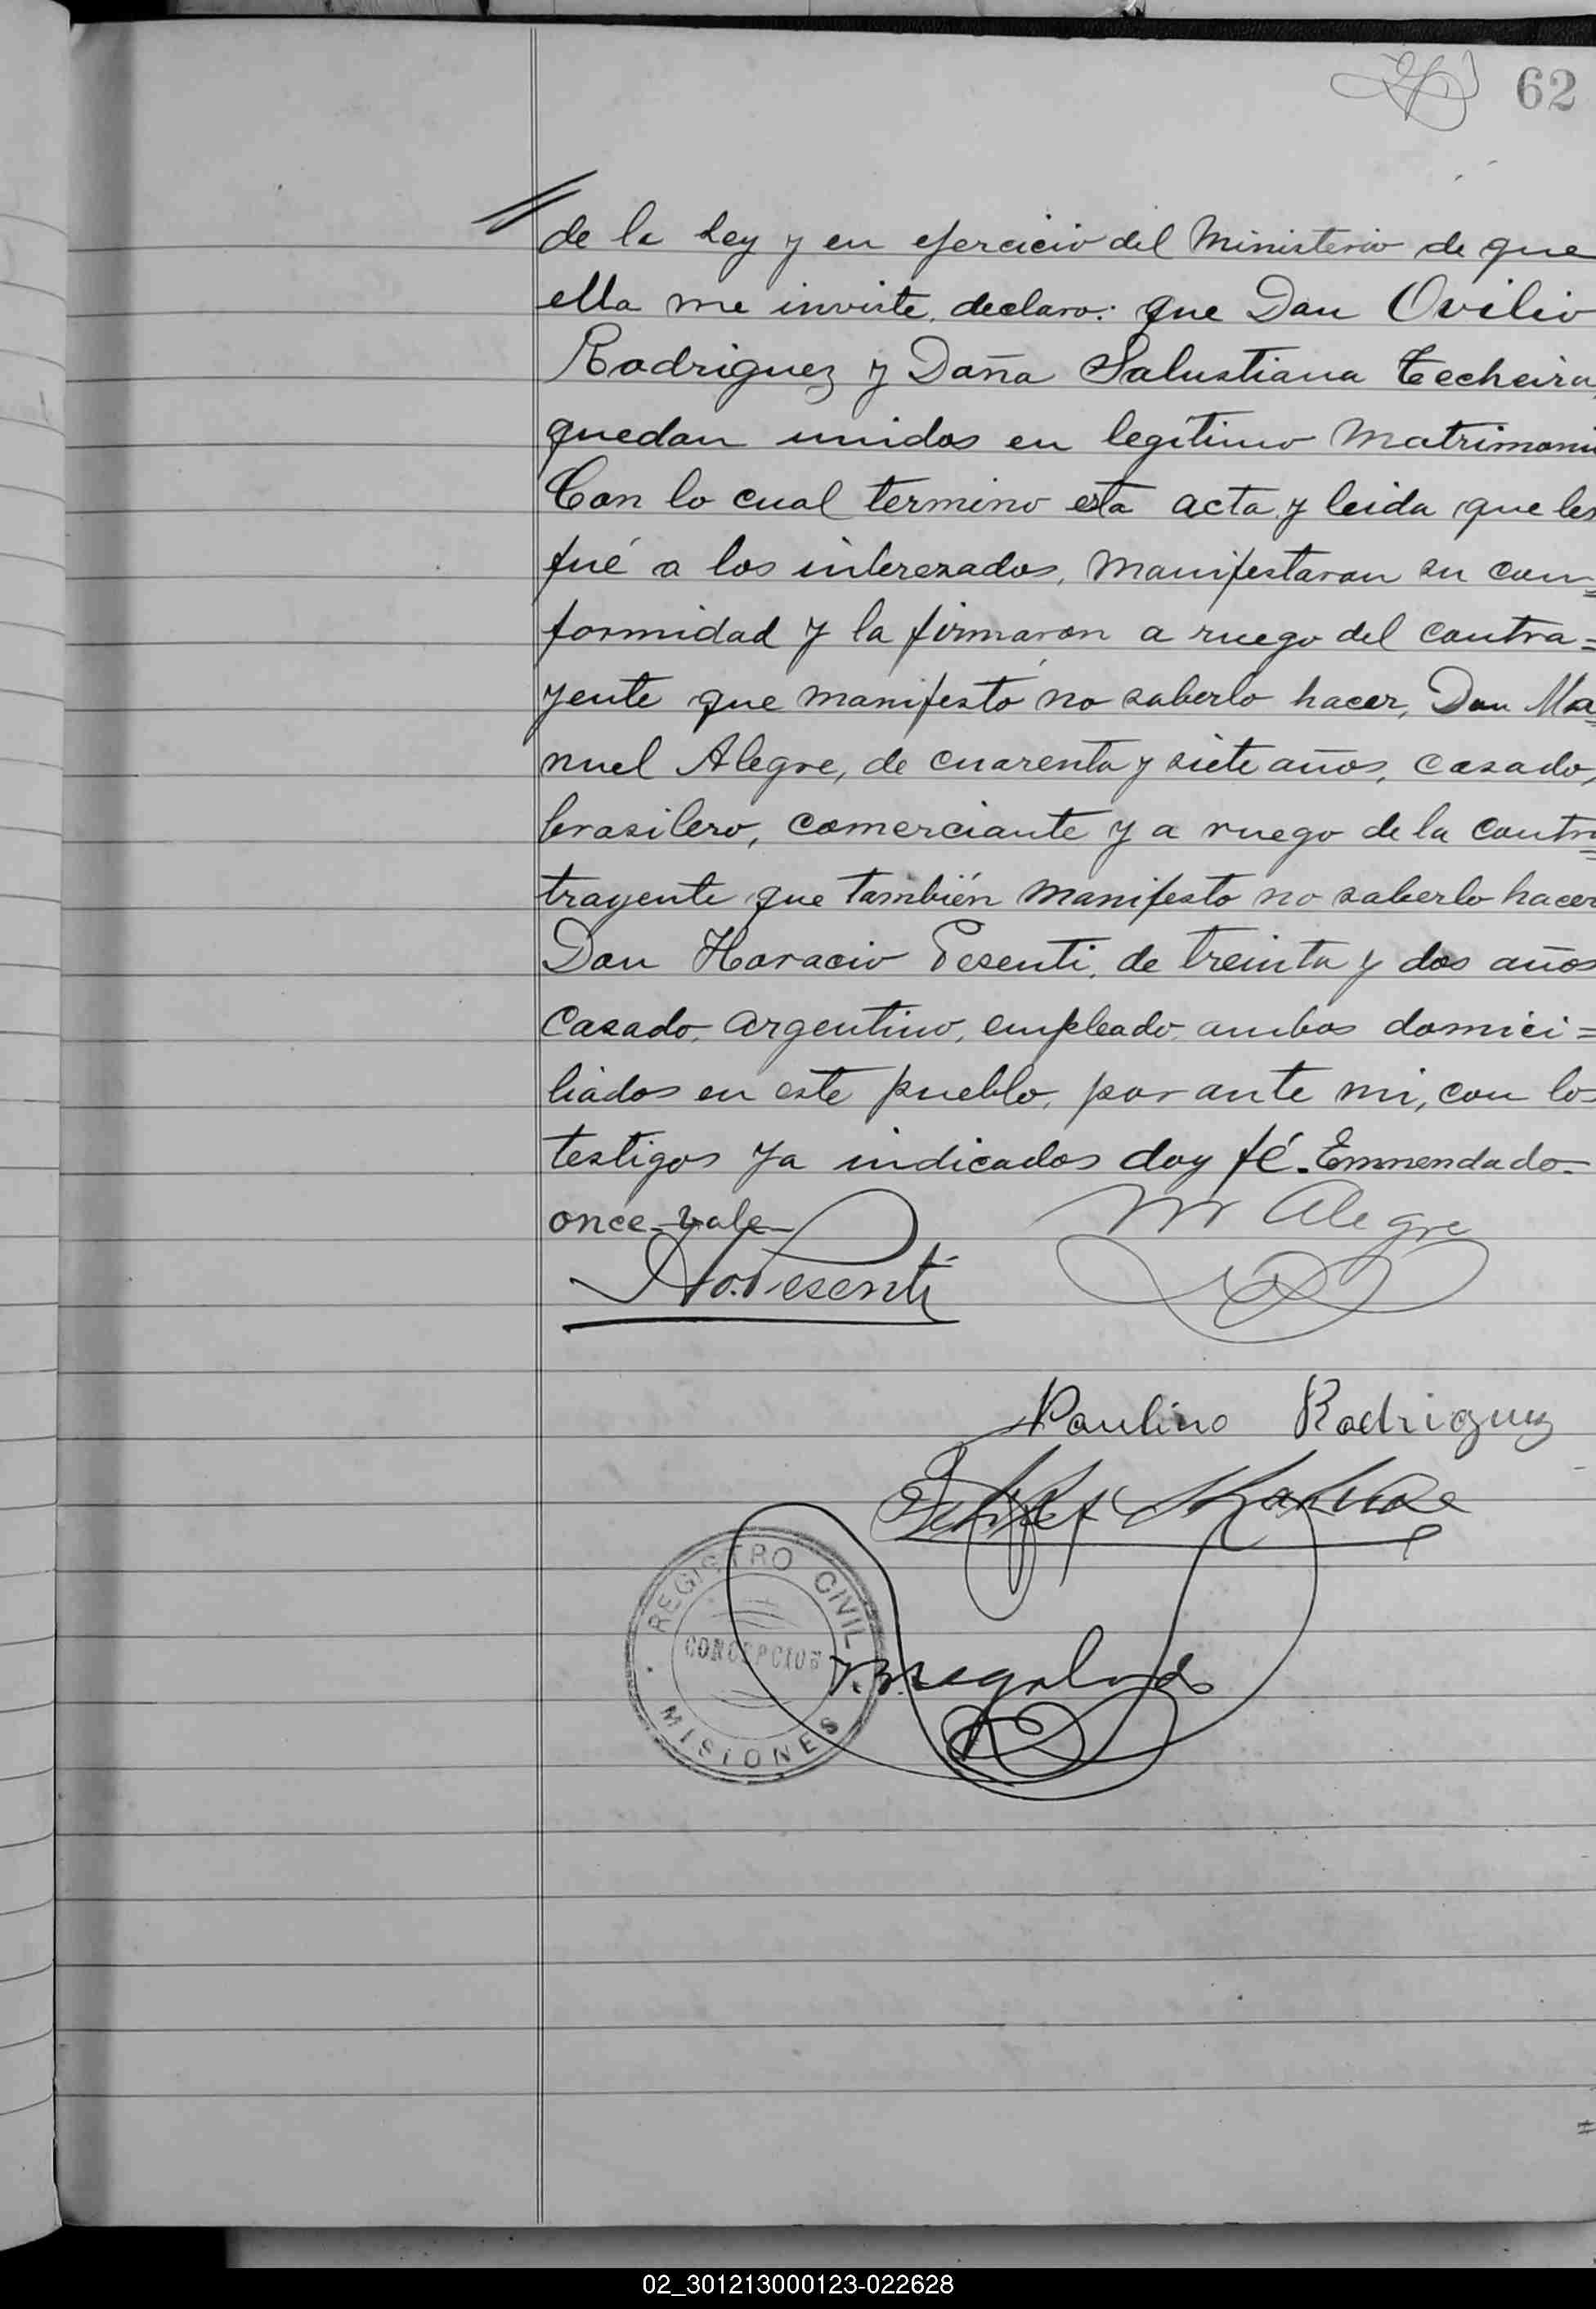 62
de la Ley y en ejercicio del Ministerio de que
ella me inviste, declaro: que Don Ovilio
Rodriguez y Doña Salustiana Techeira,
quedan unidos en legítimo Matrimoni
Con lo cual termino esta acta y leida que les
fué a los interezados, manifestaron su con=
formidad y la firmaron a ruego del contra=
yente que manifestó no saberlo hacer, Don Ma=
nuel Alegre, de cuarenta y siete años, casado,
brasilero, comerciante y a ruego de la contra=
trayente que también manifesto no saberlo hacer
Don Horacio Pesenti, de treinta y dos años
Casado, argentino, empleado, ambos domici=
liados en este pueblo, por ante mi, con los
testigos ya indicados doy fé. Emmendado-
once-vale-
M Alegre
Ho. Pesenti
Paulino Rodriguez
REGISTRO CIVIL
CONCEPCION
MISIONES
02_301213000123-022628